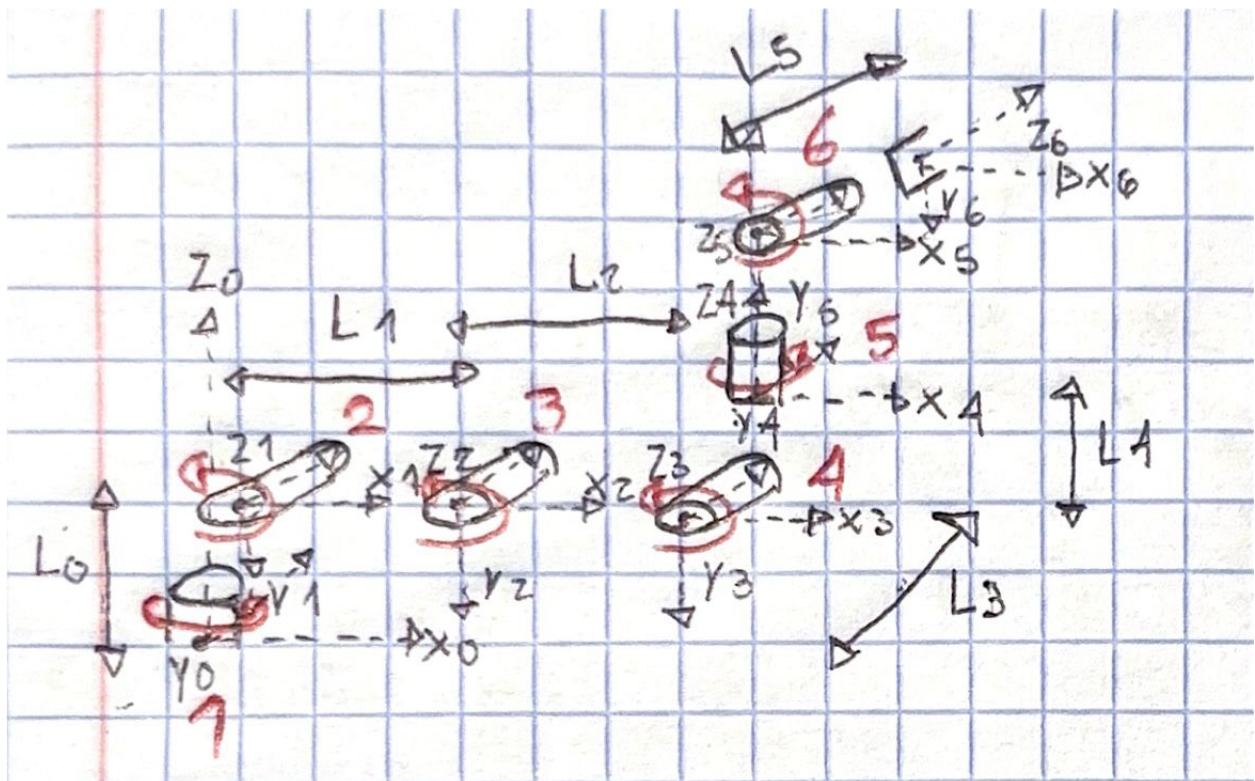 L5
6
Z6
X6
Y6
Z5
X5
Z0
L2
Z4
Y5
L1
5
X4
Y4
L4
2
3
Z1
X1
Z2
X2
Z3
4
X3
L0
Y1
Y2
Y3
L3
X0
Y0
1